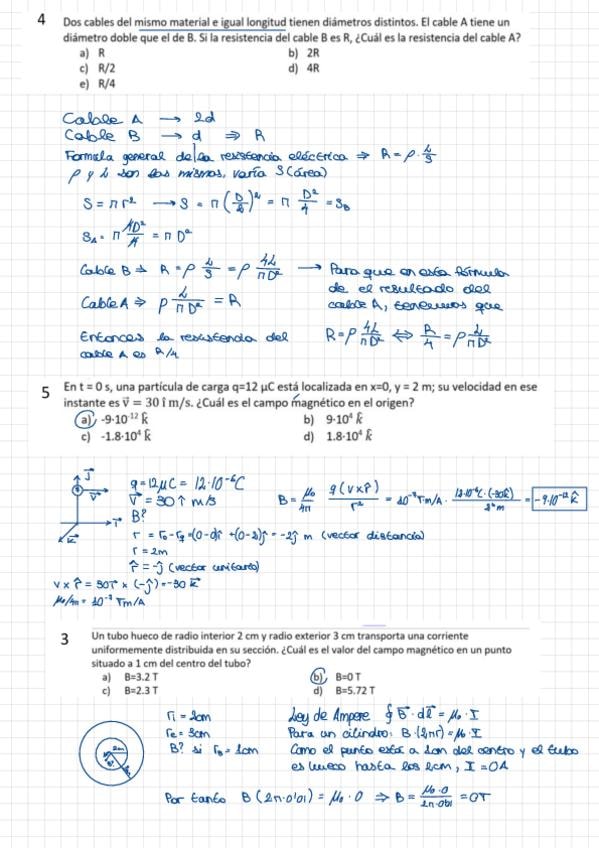 4 Dos cables del mismo material e igual longitud tienen diámetros distintos. El cable A tiene un
diámetro doble que el de B. Si la resistencia del cable B es R, ¿Cuál es la resistencia del cable A?
a) R b) 2R
c) R/2 d) 4R
e) R/4
Cable A → 2d
Cable B → d ⇒ R
Formula general de la resistencia eléctrica ⇒ R = ρ · L/S
ρ y L son los mismos, varía S (área)
S = π r² → S = π (D/2)² = π D²/4 = S_B
S_A = π 4D²/4 = π D²
Cable B ⇒ R = ρ L/S = ρ 4L/πD² → Para que en esta fórmula
de el resultado del
Cable A ⇒ ρ L/πD² = R cable A, tenemos que
Entonces la resistencia del R = ρ 4L/πD² ⇔ R/4 = ρ L/πD²
cable A es R/4
5 En t = 0 s, una partícula de carga q=12 µC está localizada en x=0, y = 2 m; su velocidad en ese
instante es v⃗ = 30 î m/s. ¿Cuál es el campo magnético en el origen?
a) -9·10⁻¹² k̂ b) 9·10⁴ k̂
c) -1.8·10⁴ k̂ d) 1.8·10⁴ k̂
q = 12µC = 12·10⁻⁶C
V⃗ = 30 î m/s
B?
B = µ₀/4π q(v×r̂)/r² = 10⁻⁷Tm/A · 12·10⁻⁶C·(-30k̂)/2²m = -9·10⁻¹² k̂
r = r₀ - r_q = (0-0)î + (0-2)ĵ = -2ĵ m (vector distancia)
r = 2m
r̂ = -ĵ (vector unitario)
v × r̂ = 30î × (-ĵ) = -30 k⃗
µ₀/4π = 10⁻⁷ Tm/A
3 Un tubo hueco de radio interior 2 cm y radio exterior 3 cm transporta una corriente
uniformemente distribuida en su sección. ¿Cuál es el valor del campo magnético en un punto
situado a 1 cm del centro del tubo?
a) B=3.2 T b) B=0 T
c) B=2.3 T d) B=5.72 T
r_i = 2cm Ley de Ampere ∮ B⃗ · dl⃗ = µ₀ · I
r_e = 3cm Para un cilindro: B · (2πr) = µ₀ · I
B? si r_B = 1cm Como el punto está a 1cm del centro y el tubo
es hueco hasta los 2cm, I = 0A
Por tanto B (2π·0'01) = µ₀ · 0 ⇒ B = µ₀·0/2π·0'01 = 0T